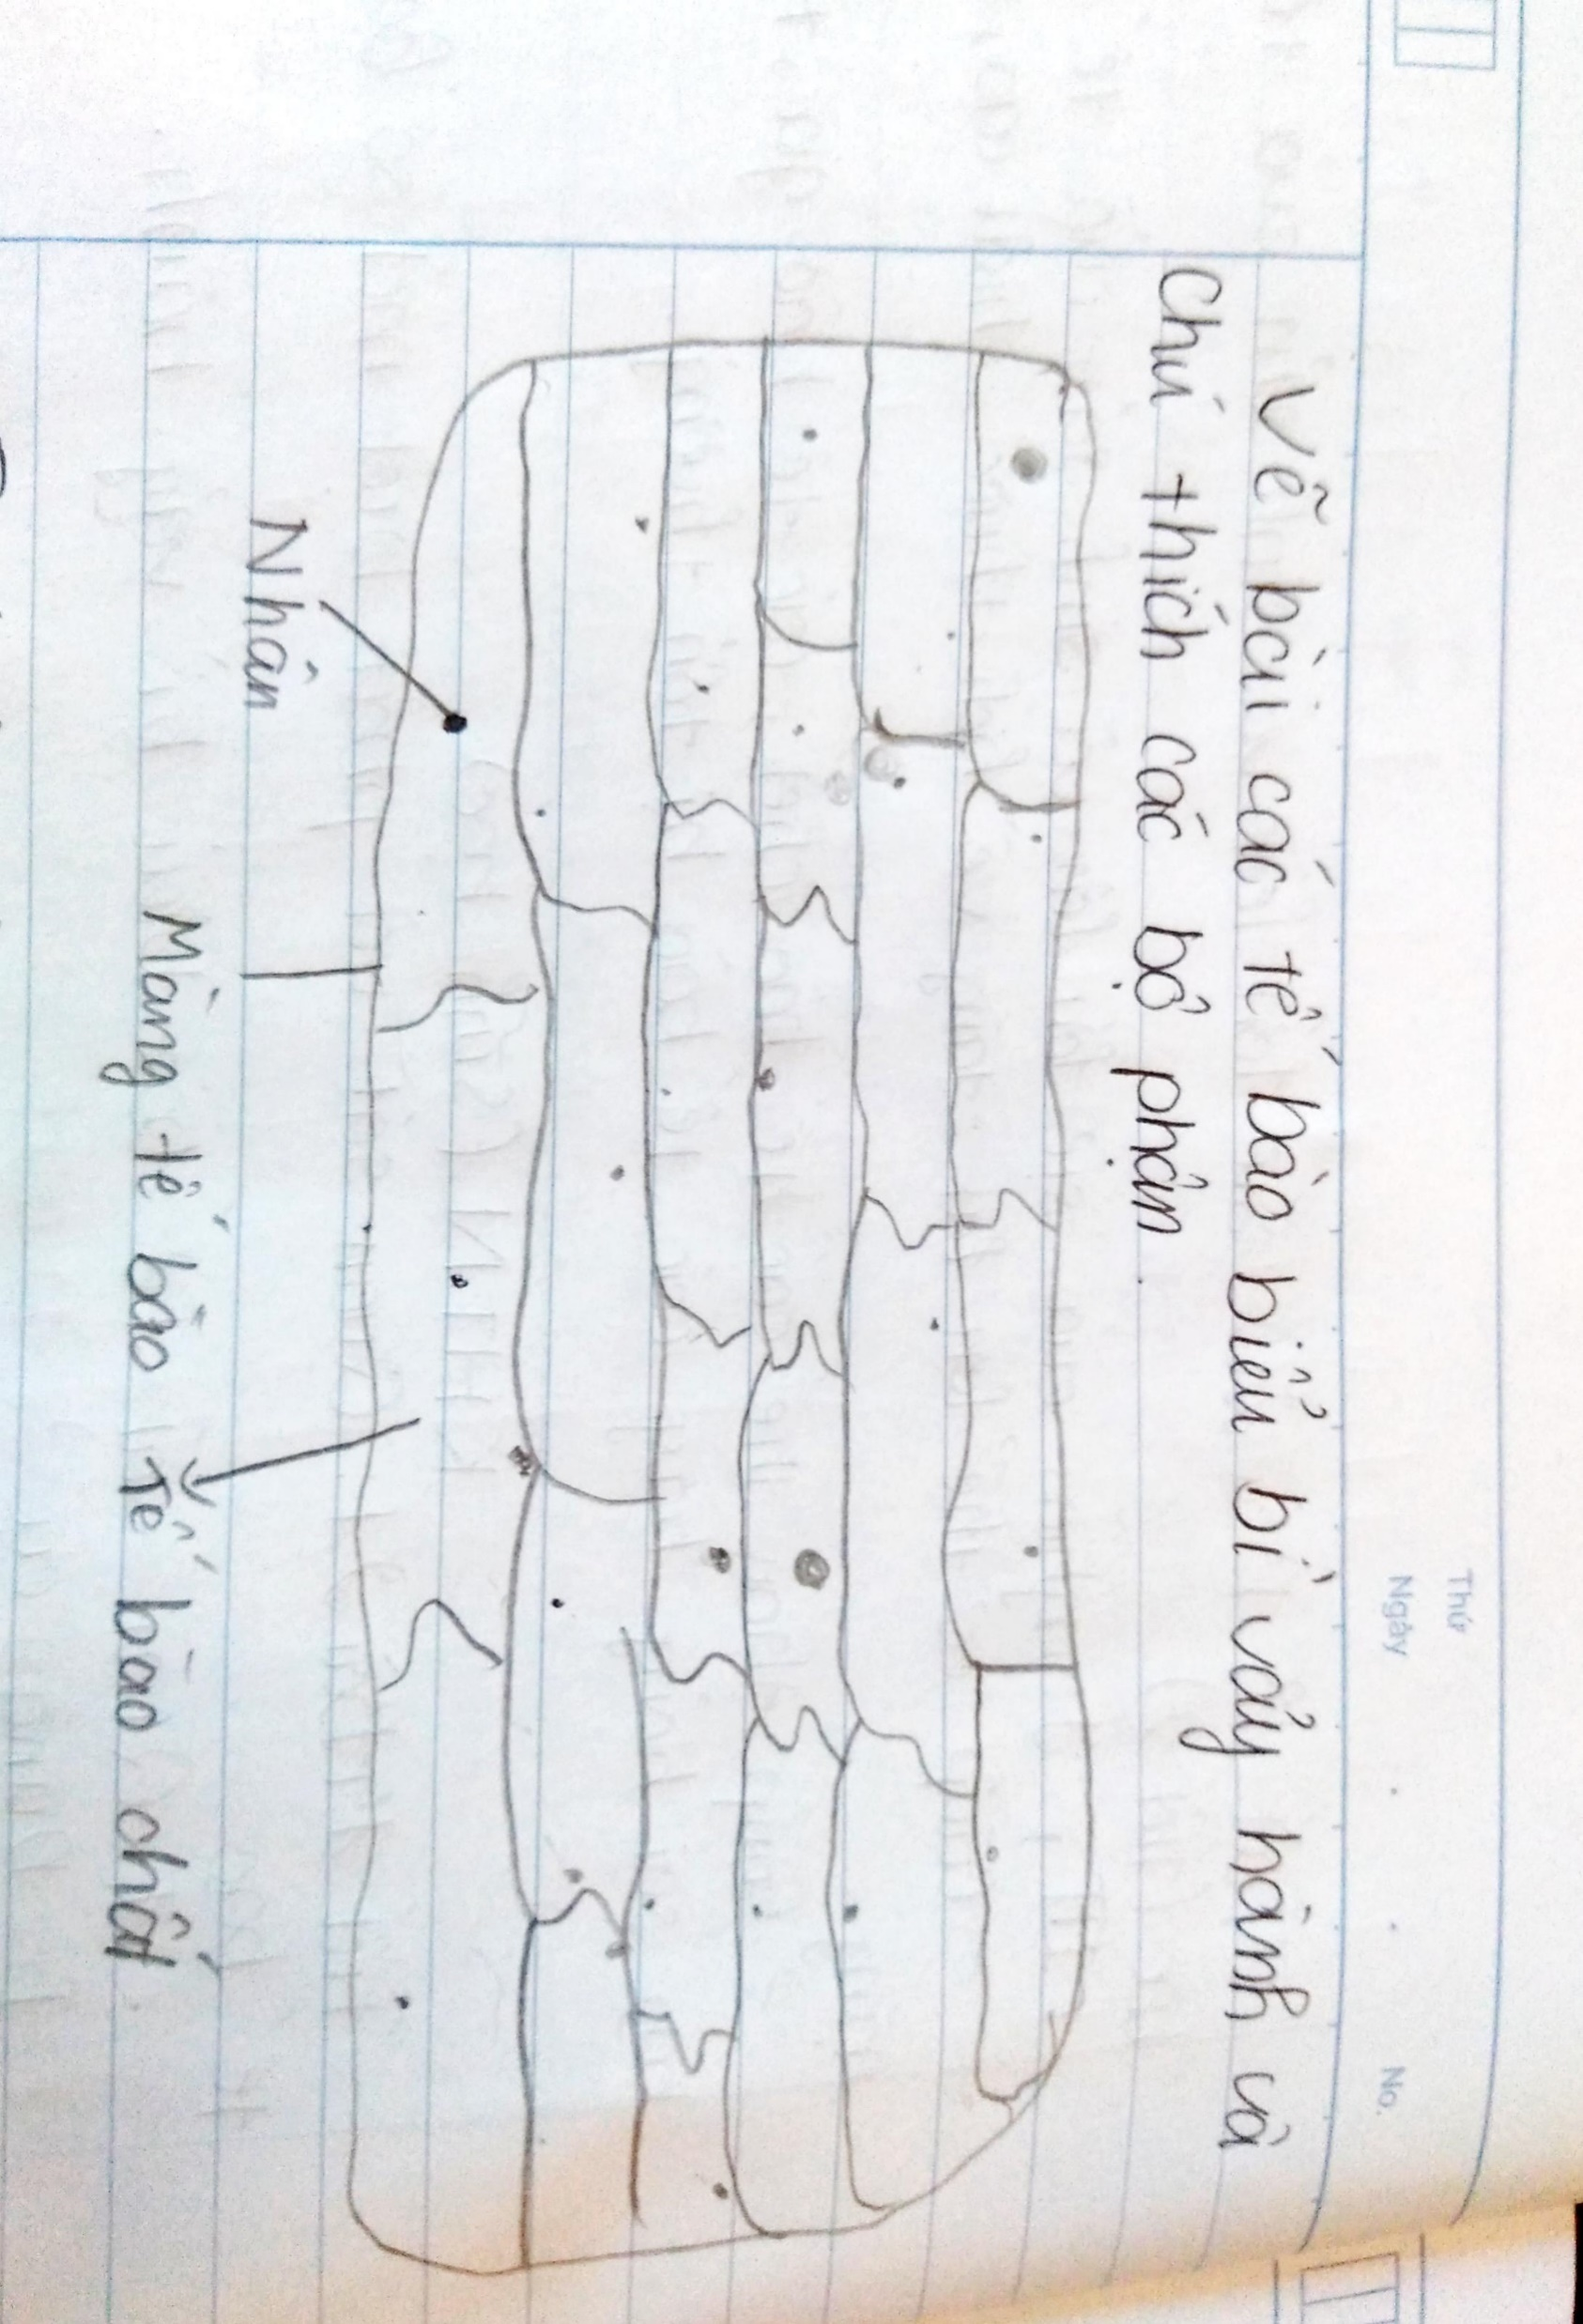 Thứ
Ngày
No.
Vẽ bài các tế bào biểu bì vảy hành và
chú thích các bộ phận.
Nhân
Màng tế bào
Tế bào chất